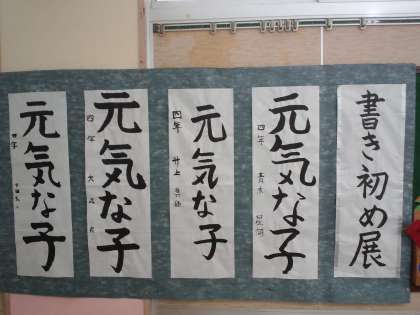 書き初め展
元気な子
四年
元気な子
四年 井上
元気な子
四年
元気な子
四年